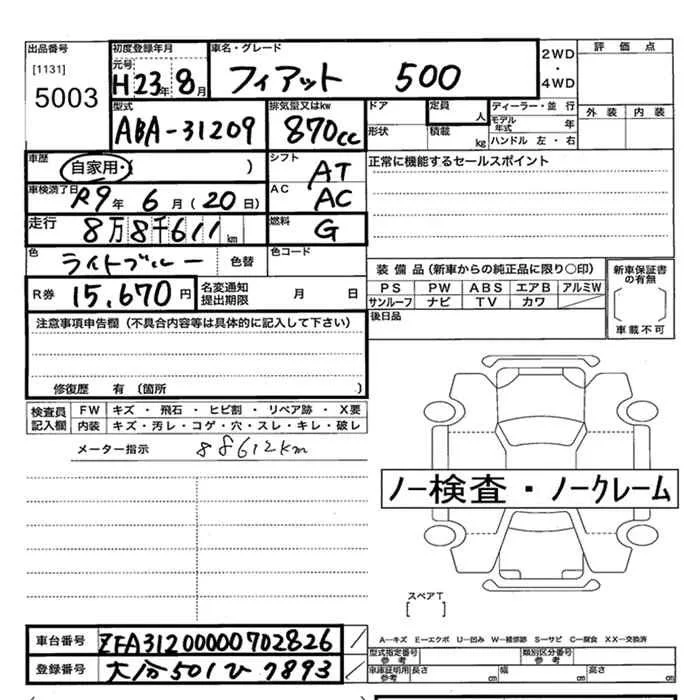 出品番号 初度登録年月 車名・グレード 2WD・4WD 評価点
[1131] 元号
5003 H23年8月 フィアット 500
外装 内装
型式 排気量又はkw ドア 定員 人 ディーラー・並行
ABA-31209 870cc 形状 積載 kg モデル年式 年
ハンドル 左・右
車歴 シフト 正常に機能するセールスポイント
自家用・( ) AT
車検満了日 AC
R9年6月(20日) AC
走行 燃料
8万8千611km G
色 色コード
ライトブルー 色替
装備品(新車からの純正品に限り○印) 新車保証書の有無
R券 15,670円 名変通知提出期限 月 日
PS PW ABS エアB アルミW
サンルーフ ナビ TV カワ
車載不可
注意事項申告欄(不具合内容等は具体的に記入して下さい) 後日品
修復歴 有〔箇所 〕
検査員記入欄 FW キズ・飛石・ヒビ割・リペア跡・X要
内装 キズ・汚レ・コゲ・穴・スレ・キレ・破レ
メーター指示 88612km
ノー検査・ノークレーム
スペアT
[ ]
車台番号 ZFA31200000702826
A―キズ E―エクボ U―凹み W―補修跡 S―サビ C―腐食 XX―交換済
型式指定番号 参考 類別区分番号 参考
登録番号 大分501ひ7893
車庫証明用 参考 長さ cm 幅 cm 高さ cm